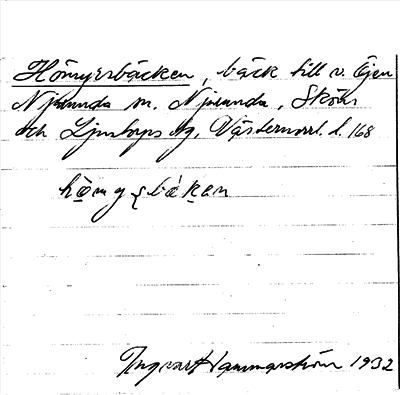 Hömyrsbäcken, bäck till v. Öjen
Njurunda sn. Njurunda, Sköns
och Ljustorps tg, Västernorrl. l. 168
Ingvar Hammarström 1932